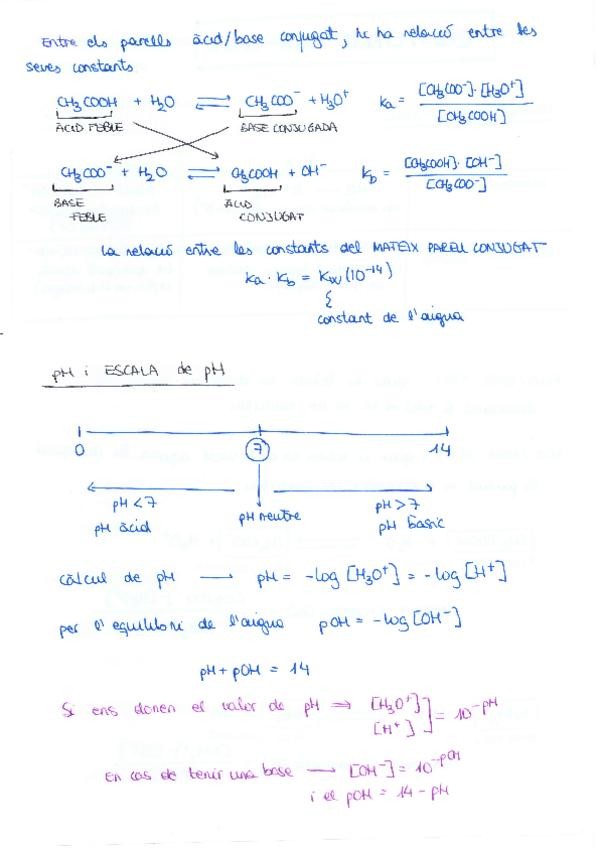 Entre els parells àcid/base conjugat, hi ha relació entre les
seves constants
CH₃COOH + H₂O ⇌ CH₃COO⁻ + H₃O⁺ Ka = [CH₃COO⁻]·[H₃O⁺] / [CH₃COOH]
ÀCID FEBLE BASE CONJUGADA
CH₃COO⁻ + H₂O ⇌ CH₃COOH + OH⁻ Kb = [CH₃COOH]·[OH⁻] / [CH₃COO⁻]
BASE FEBLE ÀCID CONJUGAT
La relació entre les constants del MATEIX PARELL CONJUGAT
Ka · Kb = Kw (10⁻¹⁴)
constant de l'aigua
pH i ESCALA de pH
0 7 14
pH < 7 pH neutre pH > 7
pH àcid pH bàsic
càlcul de pH → pH = -log [H₃O⁺] = -log [H⁺]
per l'equilibri de l'aigua pOH = -log [OH⁻]
pH + pOH = 14
Si ens donen el valor de pH ⇒ [H₃O⁺] [H⁺] ] = 10^-pH
En cas de tenir una base → [OH⁻] = 10^-pOH
i el pOH = 14 - pH